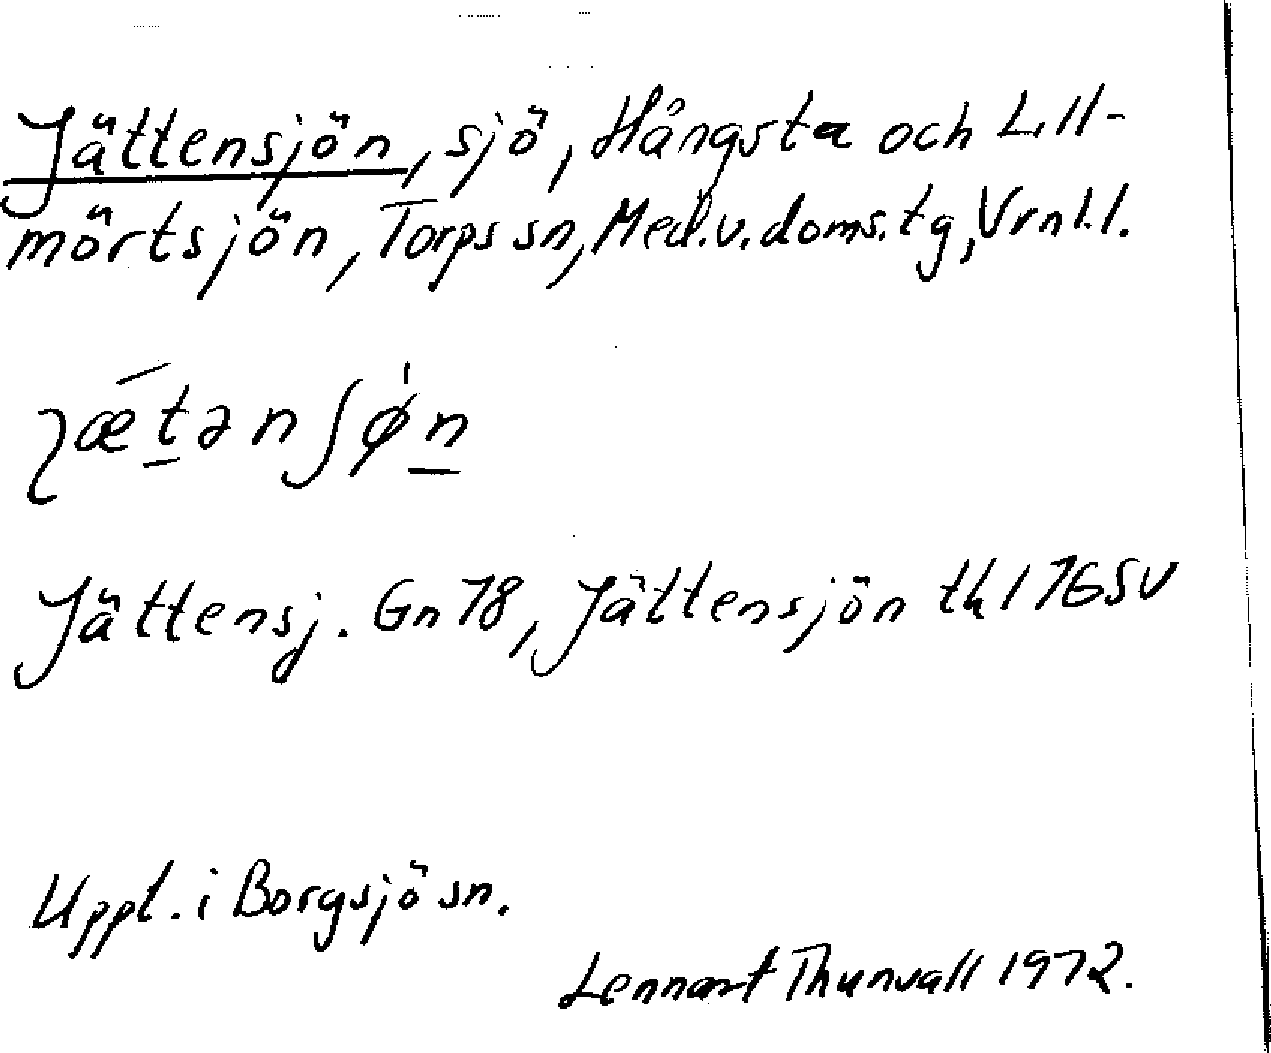 Jättensjön, sjö, Hångsta och Lill-
mörtsjön, Torps sn, Med.v.doms.tg, Vrnl.l.
ʅǽtənʃø̍n
Jättensj. Gn 78, Jättensjön thl 765V
Uppt. i Borgsjö sn.
Lennart Thunvall 1972.